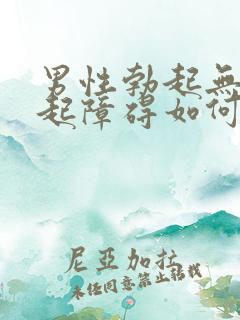 男性勃起無
起障碍如何
尼亞加拉
未经同意禁止转载